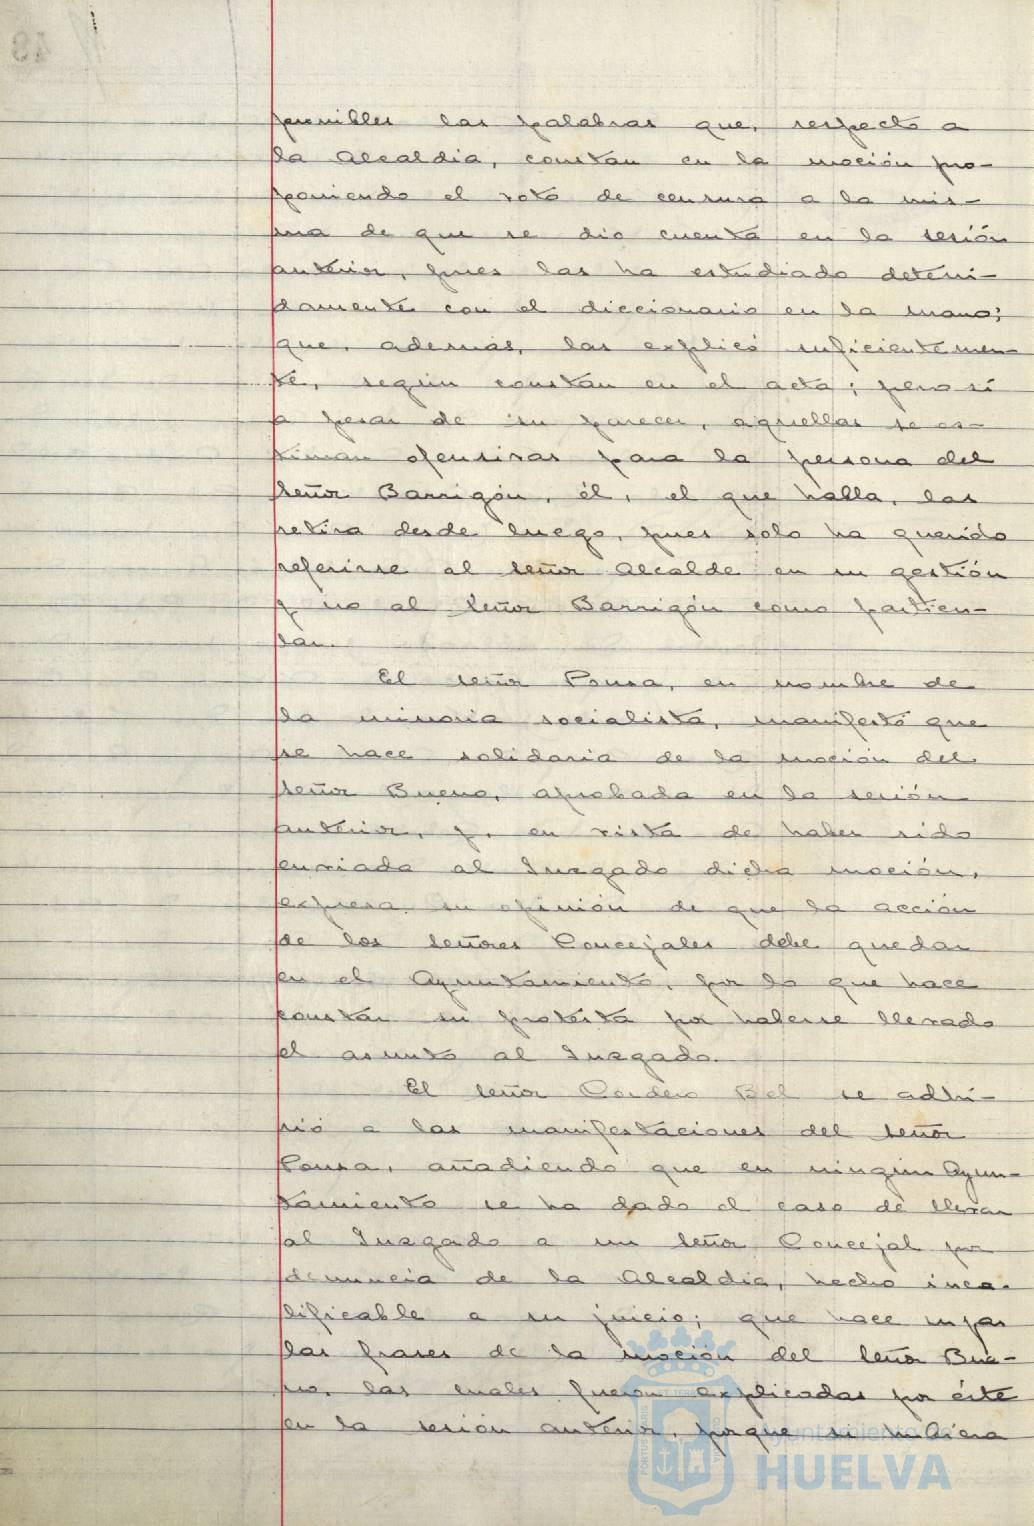 punibles las palabras que, respecto a
la Alcaldia, constan en la moción pro-
poniendo el voto de censura a la mis-
ma de que se dio cuenta en la sesión
anterior, pues las ha estudiado deteni-
damente con el diccionario en la mano;
que, además, las explicó suficientemen-
te, según constan en el acta; pero si
a pesar de su parecer, aquellas se es-
timan ofensivas para la persona del
señor Barrigón, él, el que habla, las
retira desde luego, pues solo ha querido
referirse al señor Alcalde en su gestión
y no al señor Barrigón como particu-
lar.
El señor Ponsa, en nombre de
la minoria socialista, manifestó que
se hace solidaria de la moción del
señor Bueno, aprobada en la sesión
anterior, y, en vista de haber sido
enviada al Juzgado dicha moción,
expresa su opinión de que la acción
de los señores Concejales debe quedar
en el Ayuntamiento, por lo que hace
constar su protesta por haberse llevado
el asunto al Juzgado.
El señor Cordero Bel se adhi-
rió a las manifestaciones del señor
Ponsa, añadiendo que en ningún Ayun-
tamiento se ha dado el caso de llevar
al Juzgado a un señor Concejal por
denuncia de la Alcaldia, hecho inca-
lificable a su juicio; que hace suyas
las frases de la moción del señor Bue-
no, las cuales fueron explicadas por éste
en la sesión anterior, porque si hubiera
Ayuntamiento de
HUELVA